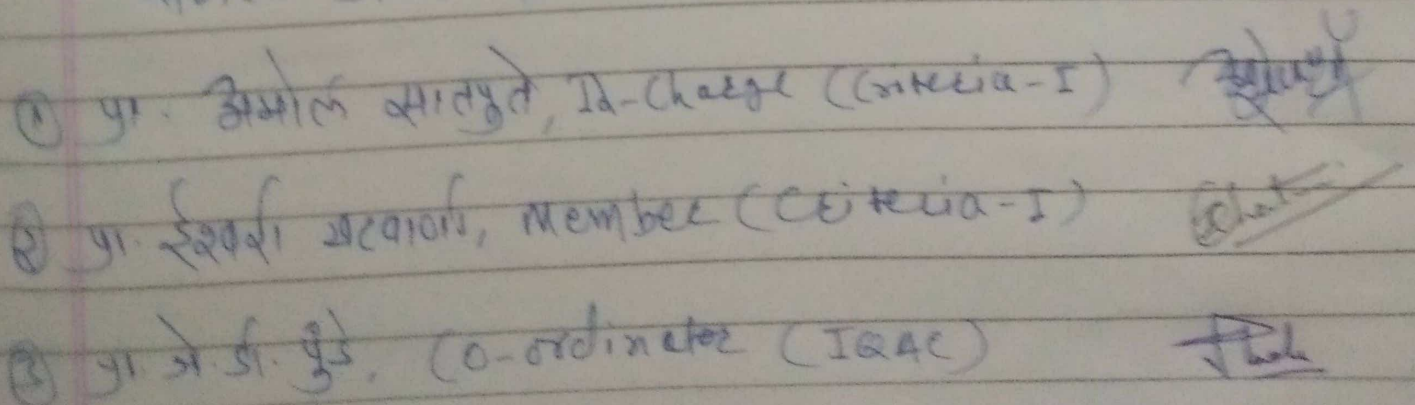 ① प्रा. अमोल सातपुते, In-Charge (Criteria-I)
② प्रा. ईश्वरी खटवाणी, Member (Criteria-I)
③ प्रा. जे. डी. पुंडे, Co-ordinator (IQAC)